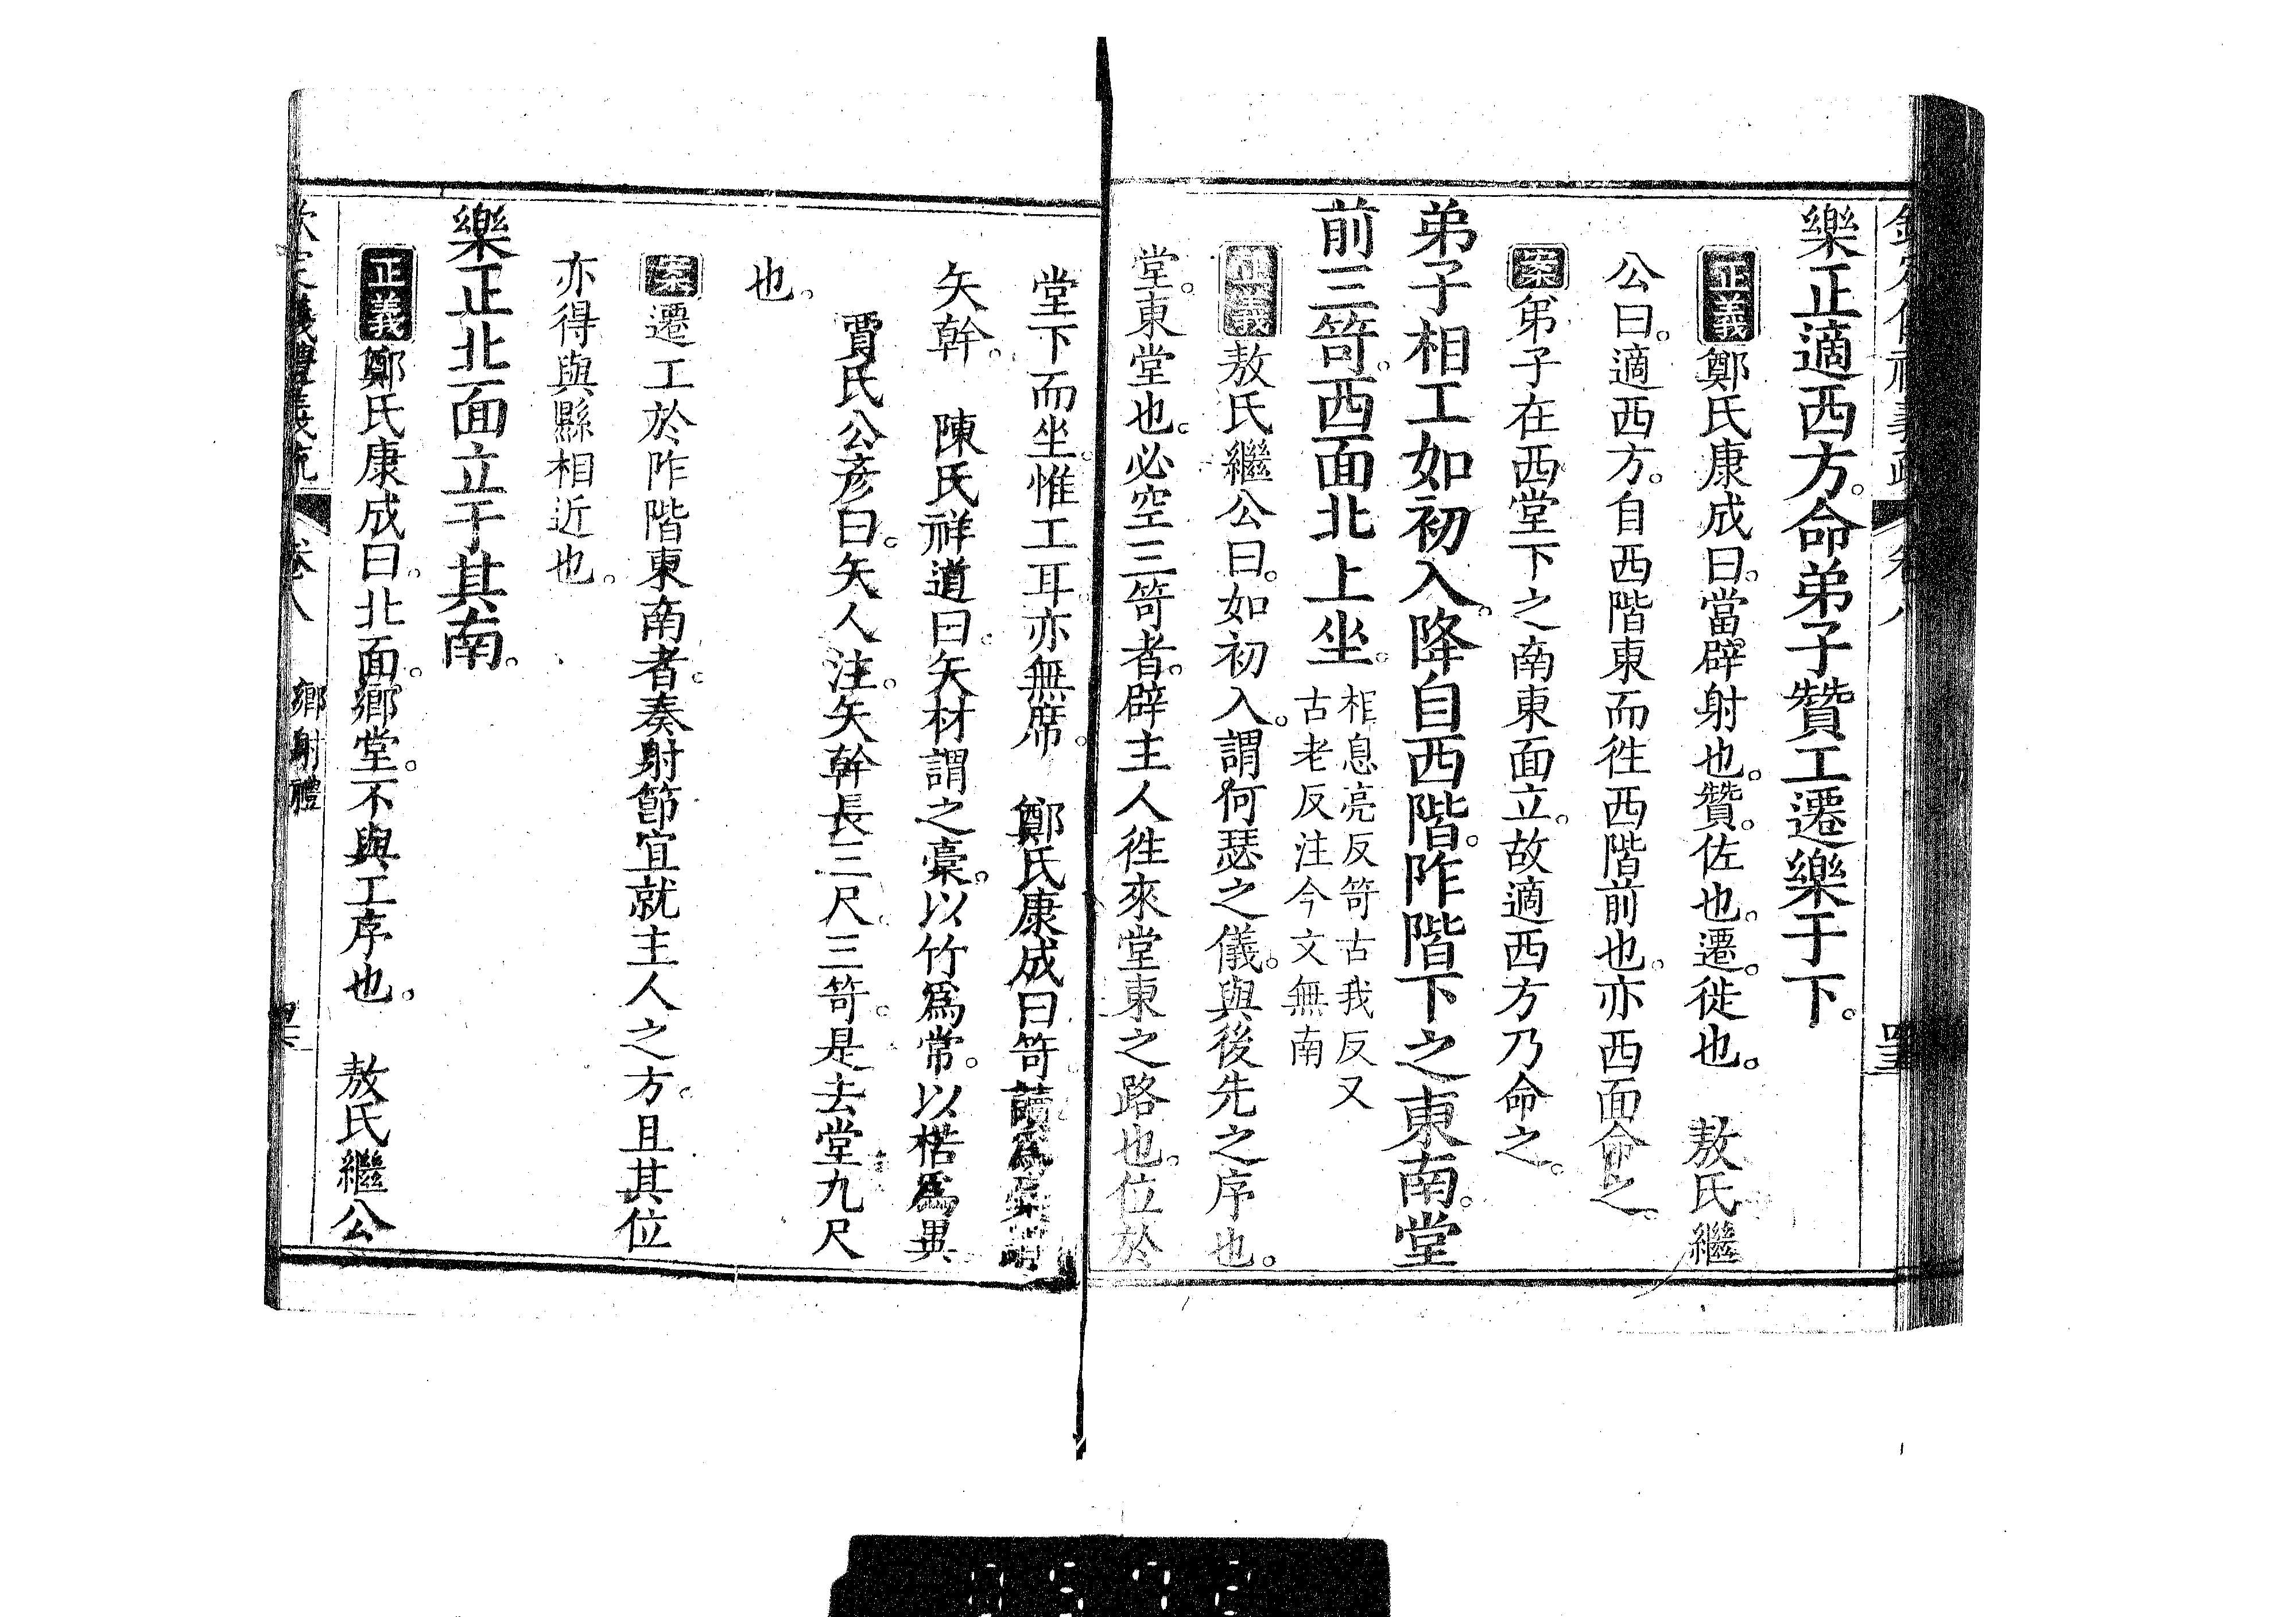 樂正適西方。命弟子贊工遷樂于下。
正義鄭氏康成曰。當辟射也。贊。佐也。遷。徙也。　敖氏繼
公曰。適西方。自西階東而徃西階前也。亦西面命之。
案弟子在西堂下之南東面立。故適西方乃命之。
弟子相工如初入。降自西階。阼階下之東南。堂
前三笴。西面北上坐。相息亮反笴古我反又
古老反注今文無南
正義敖氏繼公曰。如初入。謂何瑟之儀。與後先之序也。
堂。東堂也。必空三笴者。辟主人徃來堂東之路也。位於
堂下而坐。惟工耳亦無席。　鄭氏康成曰笴讀爲槀。謂
矢幹。　陳氏祥道曰。矢材謂之槀。以竹爲常。以楛爲異
也。
賈氏公彥曰。矢人注。矢幹長三尺。三笴。是去堂九尺
案遷工於阼階東南者。奏射節宜就主人之方。且其位
亦得與縣相近也。
樂正北面立于其南。
正義鄭氏康成曰。北面。鄉堂。不與工序也。　敖氏繼公
卷八　鄉射禮